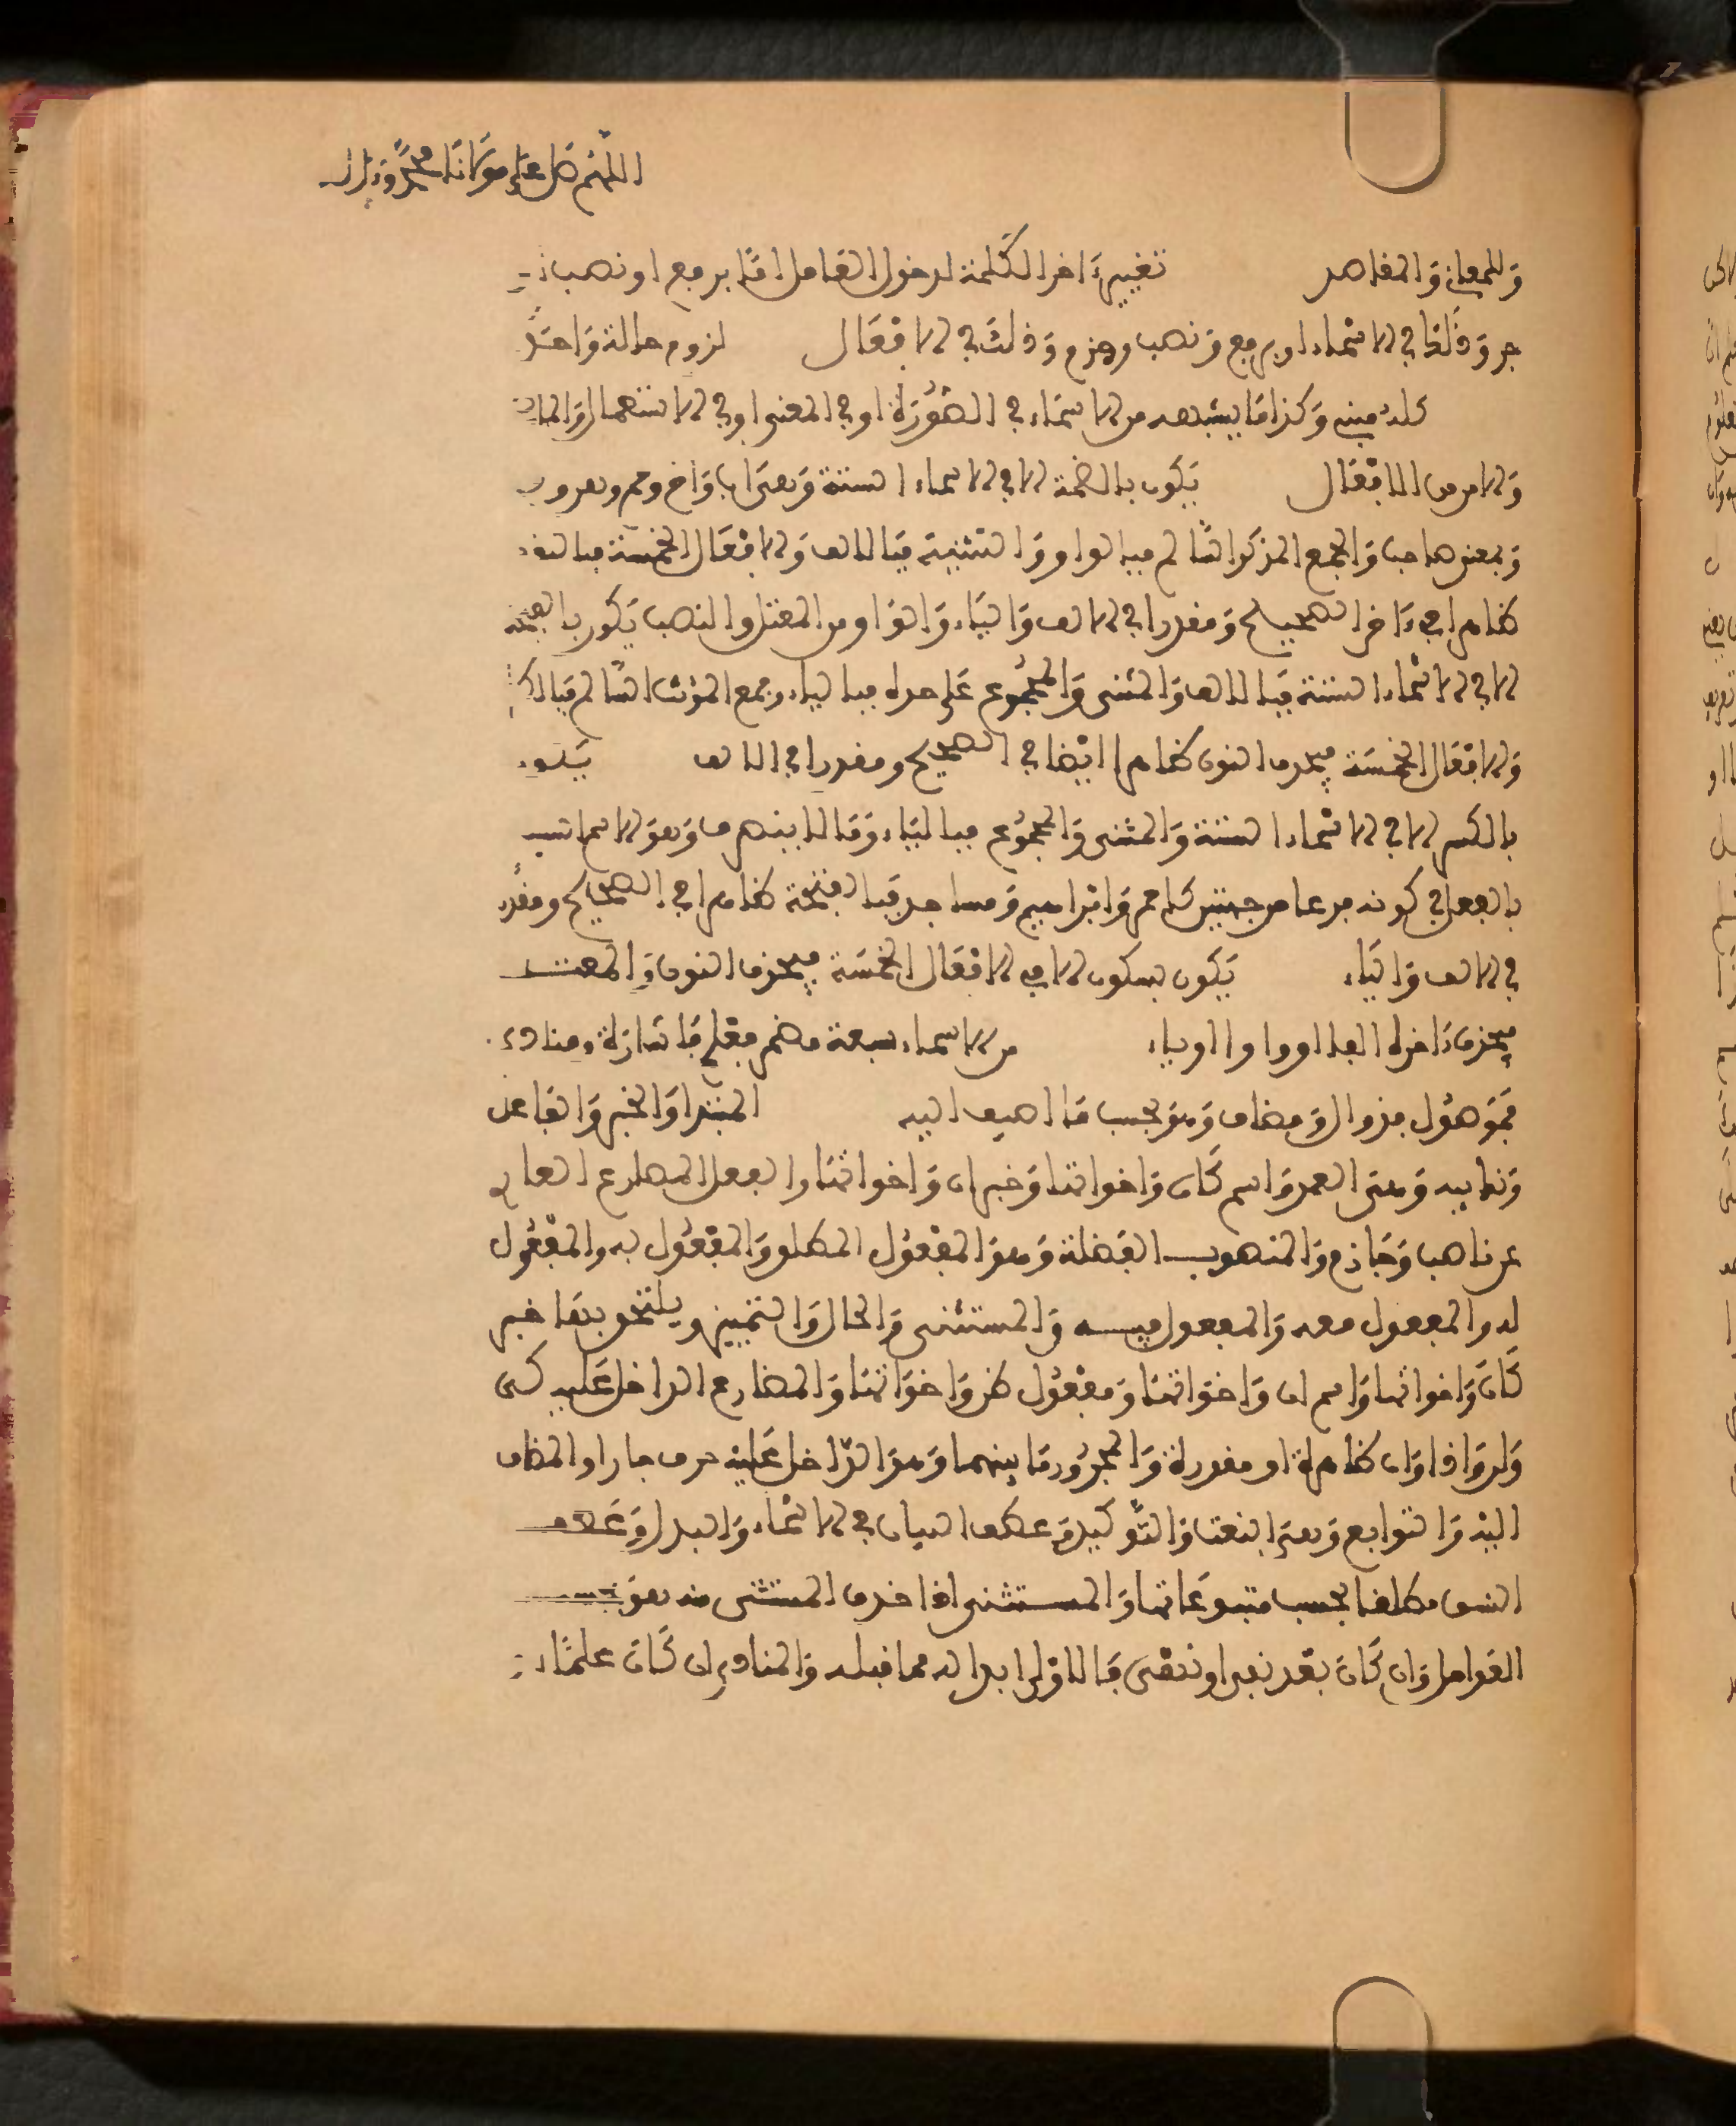 اللهم صل على مولانا محمد وءاله
وللمعاني والمقاصد تغيير ءاخر الكلمة لدخول العامل اما برفع او نصب او
جر وذلك في الاسماء او برفع ونصب وجزم وذلك في الافعال لزوم حالة واحدة
كله مبني وكذا ما يشبهه من الاسماء في الصورة او في المعنى او في الاستعمال والماضي
والامر من الافعال يكون بالضمة الا في الاسماء الستة وهي اب واخ وحم وهن وذو
وبمعنى صاحب والجمع المذكر السالم فبالواو والتثنية فبالالف والافعال الخمسة فبالنون
ظاهرا في ءاخر الصحيح ومقدرا في الالف والياء والواو من المعتل والنصب يكون بالفتحة
الا في الاسماء الستة فبالالف والمثنى والمجموع على حده فبالياء وجمع المؤنث السالم فبالكسر
والافعال الخمسة فبحذف النون ظاهرا ايضا في الصحيح ومقدرا في الالف يكون
بالكسر الا في الاسماء الستة والمثنى والمجموع فبالياء وما لا ينصرف وهو الاسم الشبيه
بالفعل في كونه فرعا من جهتين كاحمر وابراهيم ومساجد فبالفتحة ظاهرا في الصحيح ومقدرا
في الالف والياء يكون بسكون الا في الافعال الخمسة فبحذف النون والمعتل
فبحذف ءاخره الفا او واوا او ياء من الاسماء سبعة مضمر فعلم فاشارة ومنادى
فموصول فذو ال ومضاف وهو بحسب ما اضيف اليه المبتدا والخبر والفاعل
ونايبه وهي العمد واسم كان واخواتها وخبر ان واخواتها والفعل المضارع العاري
عن ناصب وجازم والمنصوب الفضلة وهو المفعول المطلق والمفعول به والمفعول
له والمفعول معه والمفعول فيه والمستثنى والحال والتمييز ويلتحق بها خبر
كان واخواتها واسم ان واخواتها ومفعول ظن واخواتها والمضارع الداخل عليه كي
ولن واذا وان ظاهرة او مقدرة والمجرور ما بينهما وهو الداخل عليه حرف جار او المضاف
اليه والتوابع وهي النعت والتوكيد وعطف البيان في الاسماء والبدل وعطف
النسق مطلقا بحسب متبوعاتها والمستثنى اذا حذف المستثنى منه فهو بحسب
العوامل وان كان بعد نفي او نهي فالاولى ابداله مما قبله والمنادى ان كان علما